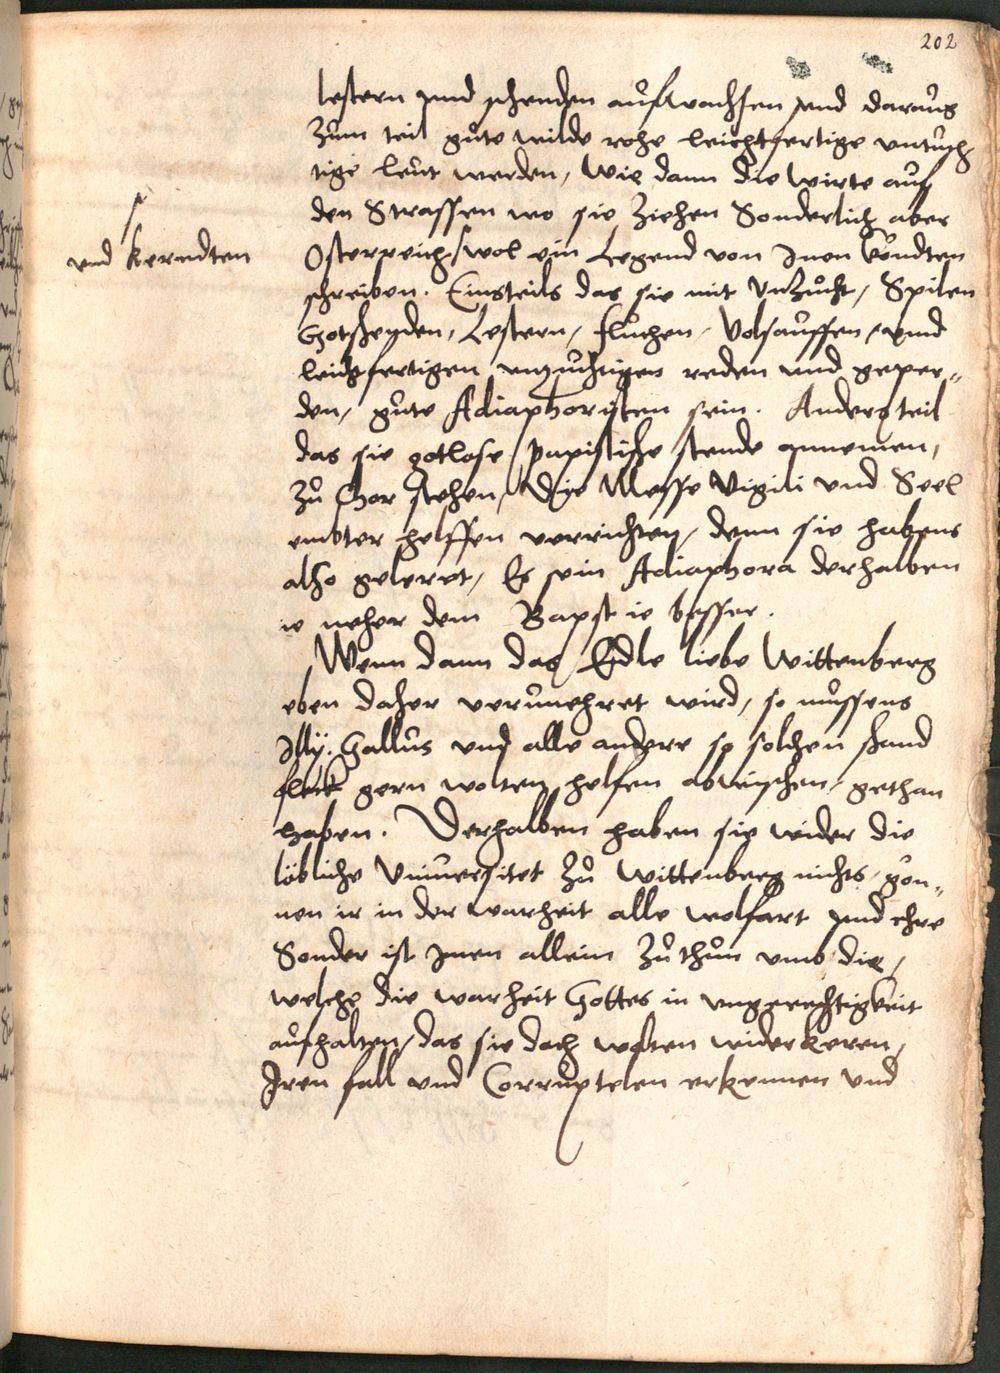 202
lestern vnd schenden aufwachsen vnd daraus
Zum teil gute wilde rohe leichtfertige vntuch
tige leut werden, Wie dann die Wirte auf
den Strassen wo sie Ziehen Sonderlich aber
und Kerndten
Osterreich wol ein Legend von Inen köndten
schreiben. Einsteils das sie mit Vnzucht, Spilen
Gotschenden, Lestern, fluchen, Volsauffen, vnnd
leichtfertigen vnzuchtigen reden und geper„
den, gute Adiaphoristen sein. Andersteil
das sie gotlose Papistische stende annemen,
Zu Chor stehen, Die Messe Vigili und Seel
embter helffen verrichten, denn sie habens
also geleret, Es sein Adiaphora derhalben
ie neher dem Bapst ie besser.
Wenn dann das Edle liebe Wittenberg
eben daher verunehret wird, so mussens
Illy. Gallus und alle andere so solchen schand
fleck gern wolten helfen abwischen, gethan
haben. Derhalben haben sie wider die
löbliche Vniuersitet Zu Wittenberg nichts, gön„
nen ir in der warheit alle wolfart vnnd ehre
Sonder ist Inen allein Zuthun vmb die,
welche die warheit Gottes in vngerechtigkeit
aufhalten, das sie doch wolten widerkeren,
Iren fall und Corruptelen erkennen und